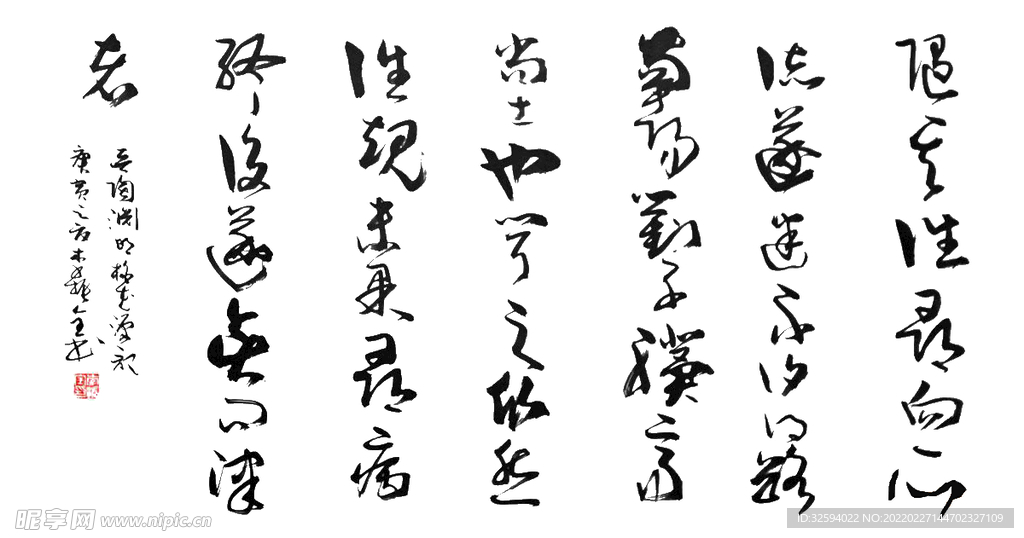 随其往尋向所
誌遂迷不復得路
南陽劉子驥高
尚士也聞之欣然
往規未果尋病
終後遂無問津
者
陶淵明桃花源記
庚寅之夏木
昵享网 www.nipic.cn
ID:32594022 NO:20220227144702327109